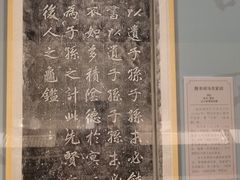 以遺子孫子孫未必能
書以遺子孫子孫未必
不如多積陰德於冥
為子孫之計此先賢
後人之龜鑑
司馬光家訓